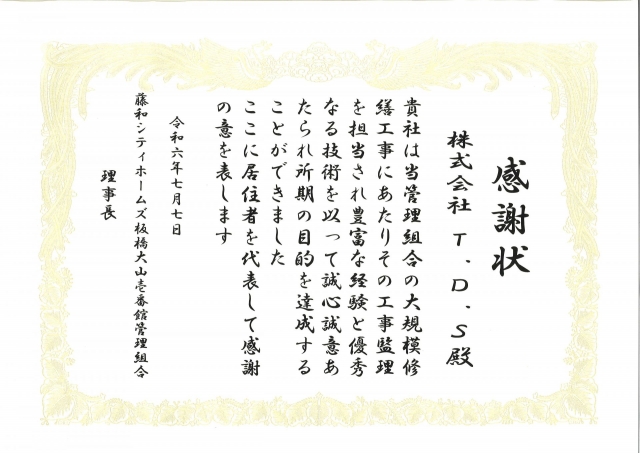 感謝状
株式会社 T.D.S殿
貴社は当管理組合の大規模修
繕工事にあたりその工事監理
を担当され豊富な経験と優秀
なる技術を以って誠心誠意あ
たられ所期の目的を達成する
ことができました
ここに居住者を代表して感謝
の意を表します
令和六年七月七日
藤和シティホームズ板橋大山壱番館管理組合
理事長